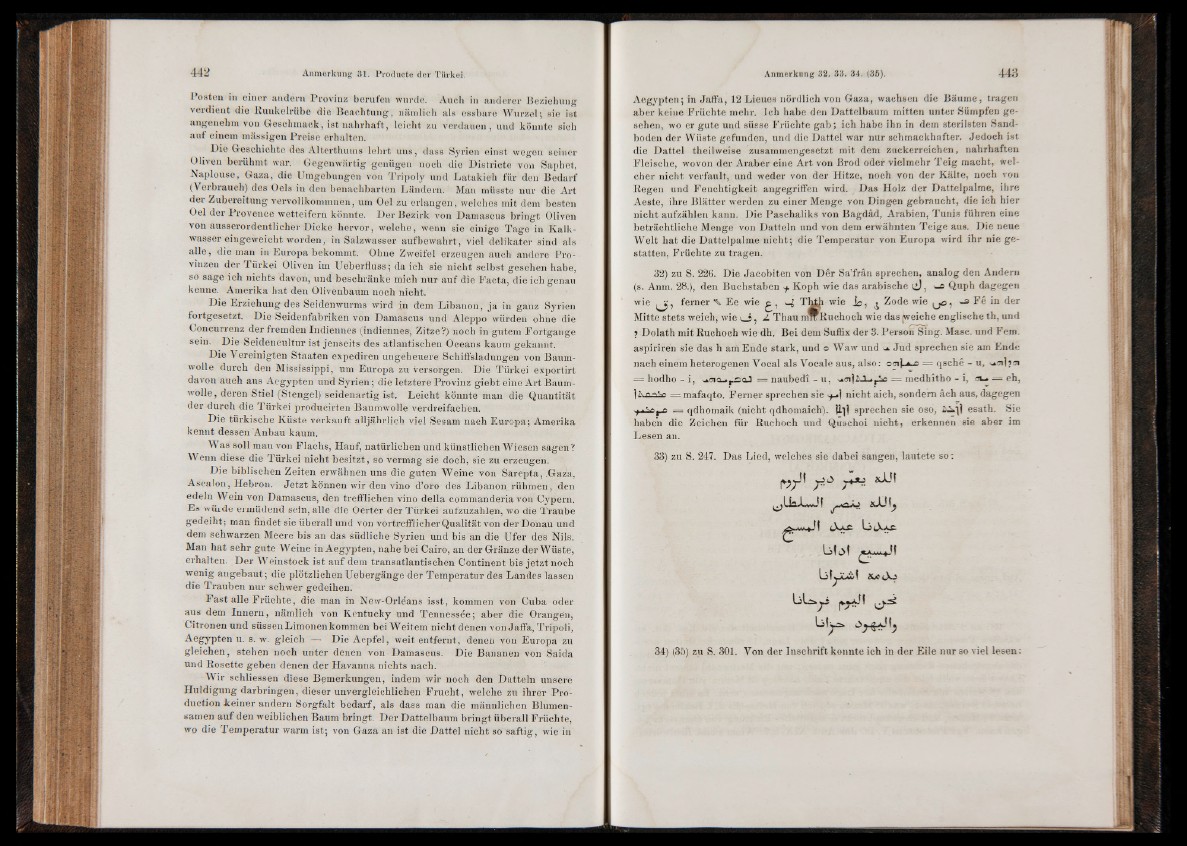 442 Anmerkung 31. Producte der Türkei.
Posten in einer andern Provinz berufen wurde. Auch in anderer Beziehung
verdient die Runkelrübe die Beachtung, nämlich als essbare Wurzel; sie ist
angenehm von Geschmack, ist nahrhaft, leicht zu verdauen, und könnte sich
auf einem mässigen Preise erhalten.
Die Geschichte des Alterthums lehrt uns, dass Syrien einst wegen seiner
Oliven berühmt war. Gegenwärtig genügen noch die Districte von Saphet,
Naplouse, Gaza, die Umgebungen von Tripoly und Latakieh für den Bedarf
(Verbrauch) des Oels in den benachbarten Ländern. Man müsste nur die Art
der Zubereitung vervollkommnen, um Oel zu erlangen, welches mit dem besten
Oel der Provence wetteifern könnte. Der Bezirk von Damascus bringt Oliven
von ausserordentlicher Dicke hervor, welche, wenn sie einige Tage in Kalk-
wasser eingeweicht worden, in Salzwasser aufbewahrt, viel delikater sind als
alle, die man in Europa bekommt. Ohne Zweifel erzeugen auch andere Pro-
vinzen der Türkei Oliven im Ueberfluss; da ich sie nicht selbst gesehen habe,
so sage ich nichts davon, und beschränke mich nur auf die Facta, die ich genau
kenne. Amerika hat den Olivenbaum noch nicht.
Die Erziehung des Seidenwurms wird in dem Libanon, ja in ganz Syrien
fortgesetzt. Die Seidenfabriken von Damascus und Aleppo würden ohne die
Concurrenz der fremden Indiennes (indiennes, Zitze?) noch in gutem Fortgange
sein. Die Seidencultur ist jenseits des atlantischen Oceans kaum gekannt.
Die Vereinigten Staaten expediren ungeheuere Schiffsladungen von Baum-
wolle durch den Mississippi, um Europa zu versorgen. Die Türkei exportirt
davon auch aus Aegypten und Syrien; die letztere Provinz giebt eine Art Baum-
wolle, deren Stiel (Stengel) seidenartig ist. Leicht könnte man die Quantität
der durch die Türkei producirten Baumwolle verdreifachen.
Die türkische Küste verkauft alljährlich viel Sesam nach Europa; Amerika
kennt dessen Anbau kaum.
Was soll man von Flachs, Hanf, natürlichen und künstlichen Wiesen sagen?
Wenn diese die Türkei nicht besitzt, so vermag sie doch, sie zu erzeugen.
Die biblischen Zeiten erwähnen uns die guten Weine von Sarepta, Gaza,
Ascalon, Hebron. Jetzt können wir den vino d'oro des Libanon rühmen, den
edeln Wein von Damascus, den trefflichen vino della commanderia von Cypern.
Es würde ermüdend sein, alle die Oerter der Türkei aufzuzahlen, wo die Traube
gedeiht; man findet sie überall und von vortrefflicher Qualität von der Donau und
dem schwarzen Meere bis an das südliche Syrien und bis an die Ufer des Nils.
Man hat sehr gute Weine in Aegypten, nahe bei Cairo, an der Gränze der Wüste,
erhalten. Der Weinstock ist auf dem transatlantischen Continent bis jetzt noch
wenig angebaut; die plötzlichen Uebergänge der Temperatur des Landes lassen
die Trauben nur schwer gedeihen.
Fast alle Früchte, die man in New-Orléans isst, kommen von Cuba oder
aus dem Innern, nämlich von Kentucky und Tennessée; aber die Orangen,
Citronen und süssen Limonen kommen bei Weitem nicht denen von Jaffa, Tripoli,
Aegypten u. s. w. gleich — Die Aepfel, weit entfernt, denen von Europa zu
gleichen, stehen noch unter denen von Damascus. Die Bananen von Saida
und Rosette geben denen der Havanna nichts nach.
Wir schliessen diese Bemerkungen, indem wir noch den Datteln unsere
Huldigung darbringen, dieser unvergleichlichen Frucht, welche zu ihrer Pro-
duction keiner andern Sorgfalt bedarf, als dass man die männlichen Blumen-
samen auf den weiblichen Baum bringt. Der Dattelbaum bringt überall Früchte,
wo die Temperatur warm ist; von Gaza an ist die Dattel nicht so saftig, wie in
Anmerkung 32. 33. 34. (35). 443
Aegypten; in Jaffa, 12 Lieues nördlich von Gaza, wachsen die Bäume, tragen
aber keine Früchte mehr. Ich habe den Dattelbaum mitten unter Sümpfen ge-
sehen, wo er gute und süsse Früchte gab; ich habe ihn in dem sterilsten Sand-
boden der Wüste gefunden, und die Dattel war nur schmackhafter. Jedoch ist
die Dattel theilweise zusammengesetzt mit dem zuckerreichen, nahrhaften
Fleische, wovon der Araber eine Art von Brod oder vielmehr Teig macht, wel-
cher nicht verfault, und weder von der Hitze, noch von der Kälte, noch von
Regen und Feuchtigkeit angegriffen wird. Das Holz der Dattelpalme, ihre
Aeste, ihre Blätter werden zu einer Menge von Dingen gebraucht, die ich hier
nicht aufzählen kann. Die Paschaliks von Bagdâd, Arabien, Tunis führen eine
beträchtliche Menge von Datteln und von dem erwähnten Teige aus. Die neue
Welt hat die Dattelpalme nicht; die Temperatur von Europa wird ihr nie ge-
statten, Früchte zu tragen.
32) zu S. 226. Die Jacobiten von Dêr Sa'frân sprechen, analog den Andern
(s. Anm. 28.), den Buchstaben Koph wie das arabische ك, Quph dagegen
wie ق, ferner Ee wie ع, wie ط, Zode wie ص, Fê in der
Mitte stets weich, wie ف, Thau mit Ruchoch wie das weiche englische th, und
Dolath mit Ruchoch wie dh. Bei dem Suffix der 3. Person Sing. Masc. und Fem.
aspiriren sie das h am Ende stark, und ܘ Waw und Jud sprechen sie am Ende
nach einem heterogenen Vocal als Vocale aus, also: = qschê - u,
= hodho - i, = naubedî - u, = medhitho - i, = eh,
= mafaqto. Ferner sprechen sie nicht aich, sondern âch aus, dagegen
= qdhomaik (nicht qdhomaich). sprechen sie oso, esath. Sie
haben die Zeichen für Ruchoch und Quschoi nicht, erkennen sie aber im
Lesen an.
33) zu S. 247. Das Lied, welches sie dabei sangen, lautete so:
الله يعمّر دير الروم
والله ينصر السلطان
عيدنا عيد المسيح
المسيح ادانا
بدمه اشترانا
نحن اليوم فرحانا
واليهود حزانا
34) (35) zu S. 301. Von der Inschrift konnte ich in der Eile nur so viel lesen: